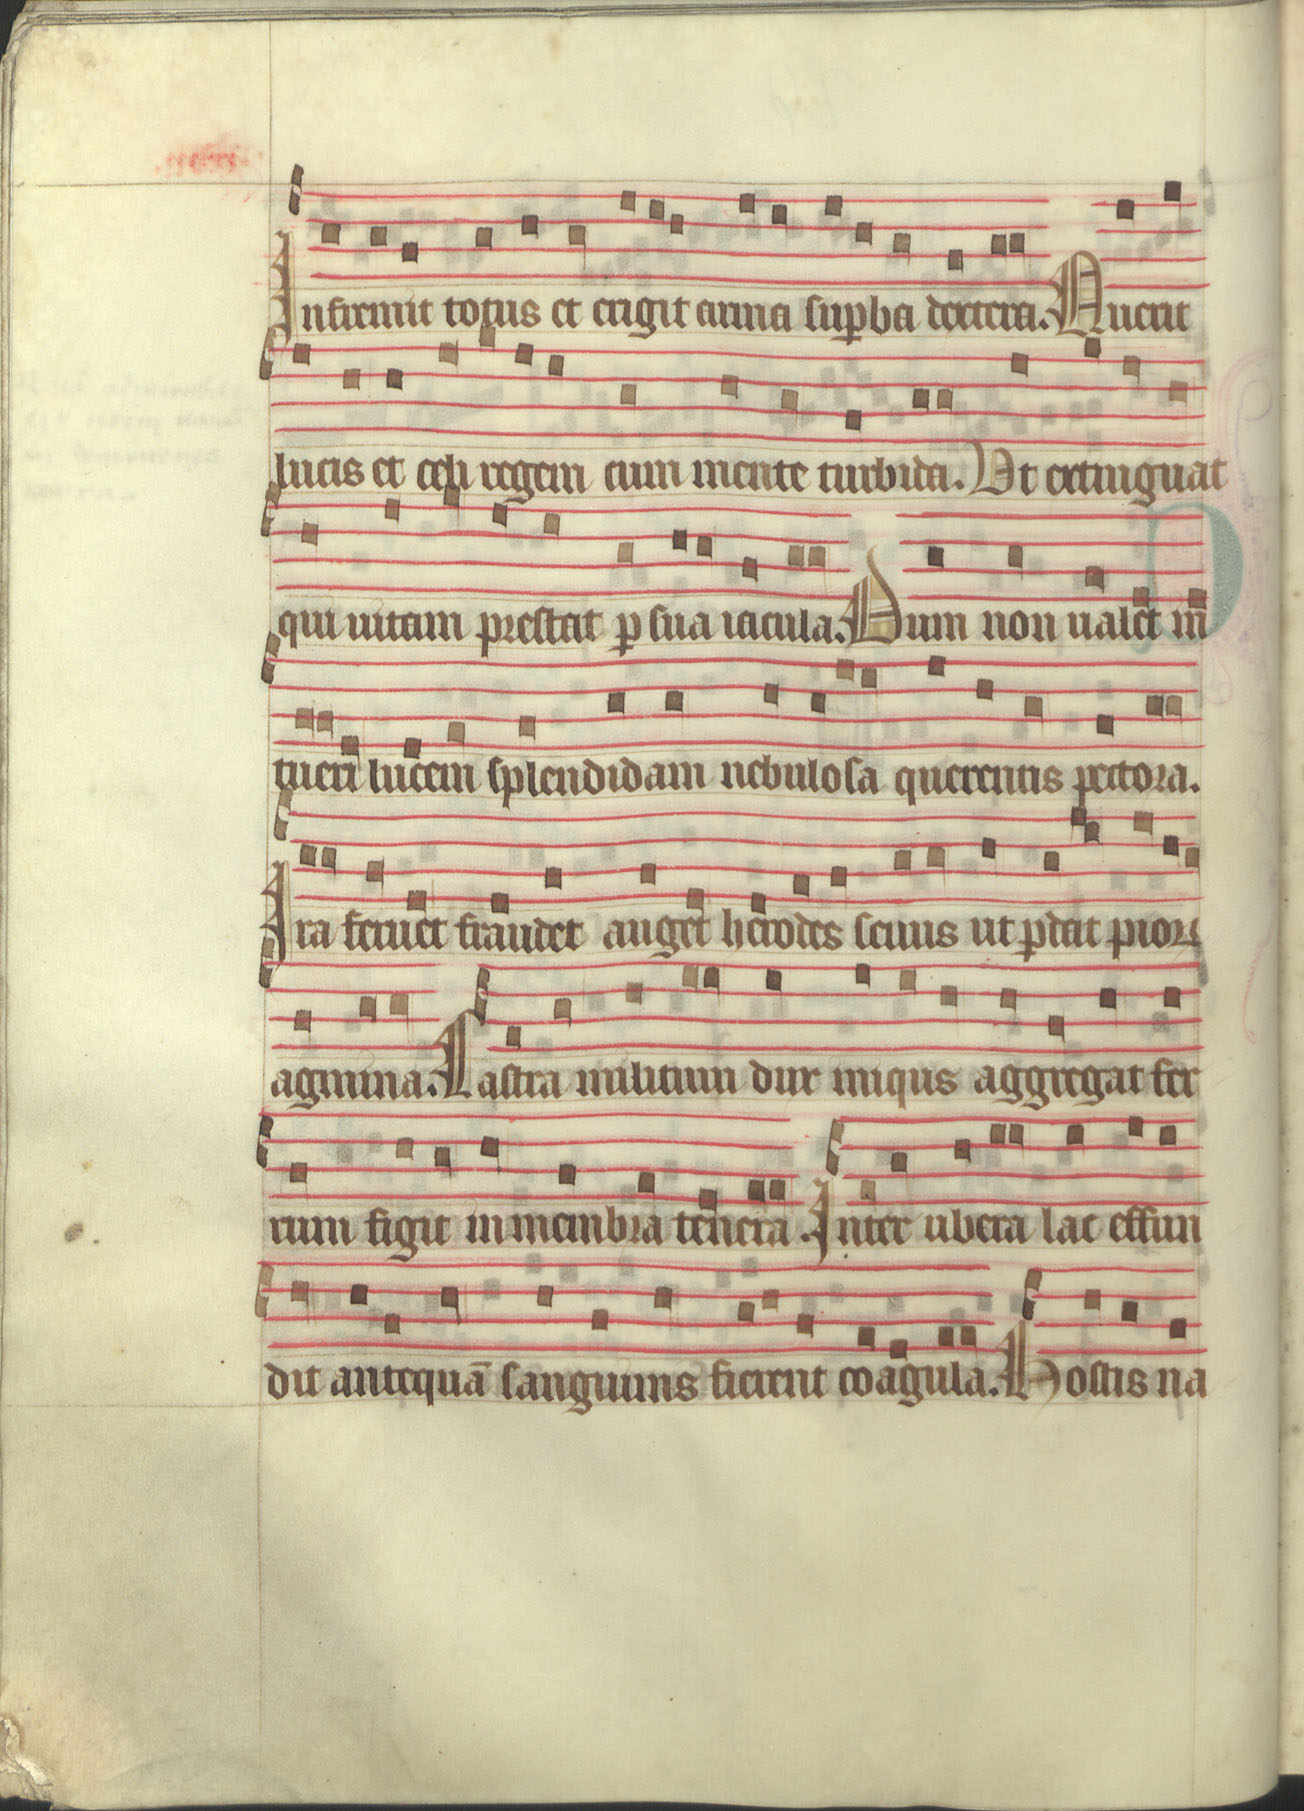 Infremit totus et erigit arma sup̱ba dextera. Querit
lucis et celi regem cum mente turbida. Ut extinguat
qui uitam prestat ꝑ sua iacula. Dum non ualet in
tueri lucem splendidam nebulosa querentis pectora.
Ira feruet fraudes auget herodes seuus ut ꝑdat pioꝝ
agmina. Castra militum dux iniqus aggregat fer
rum figit in membra tenera. Inter ubera lac effun
dit antequā sanguinis fierent coagula. Hostis na